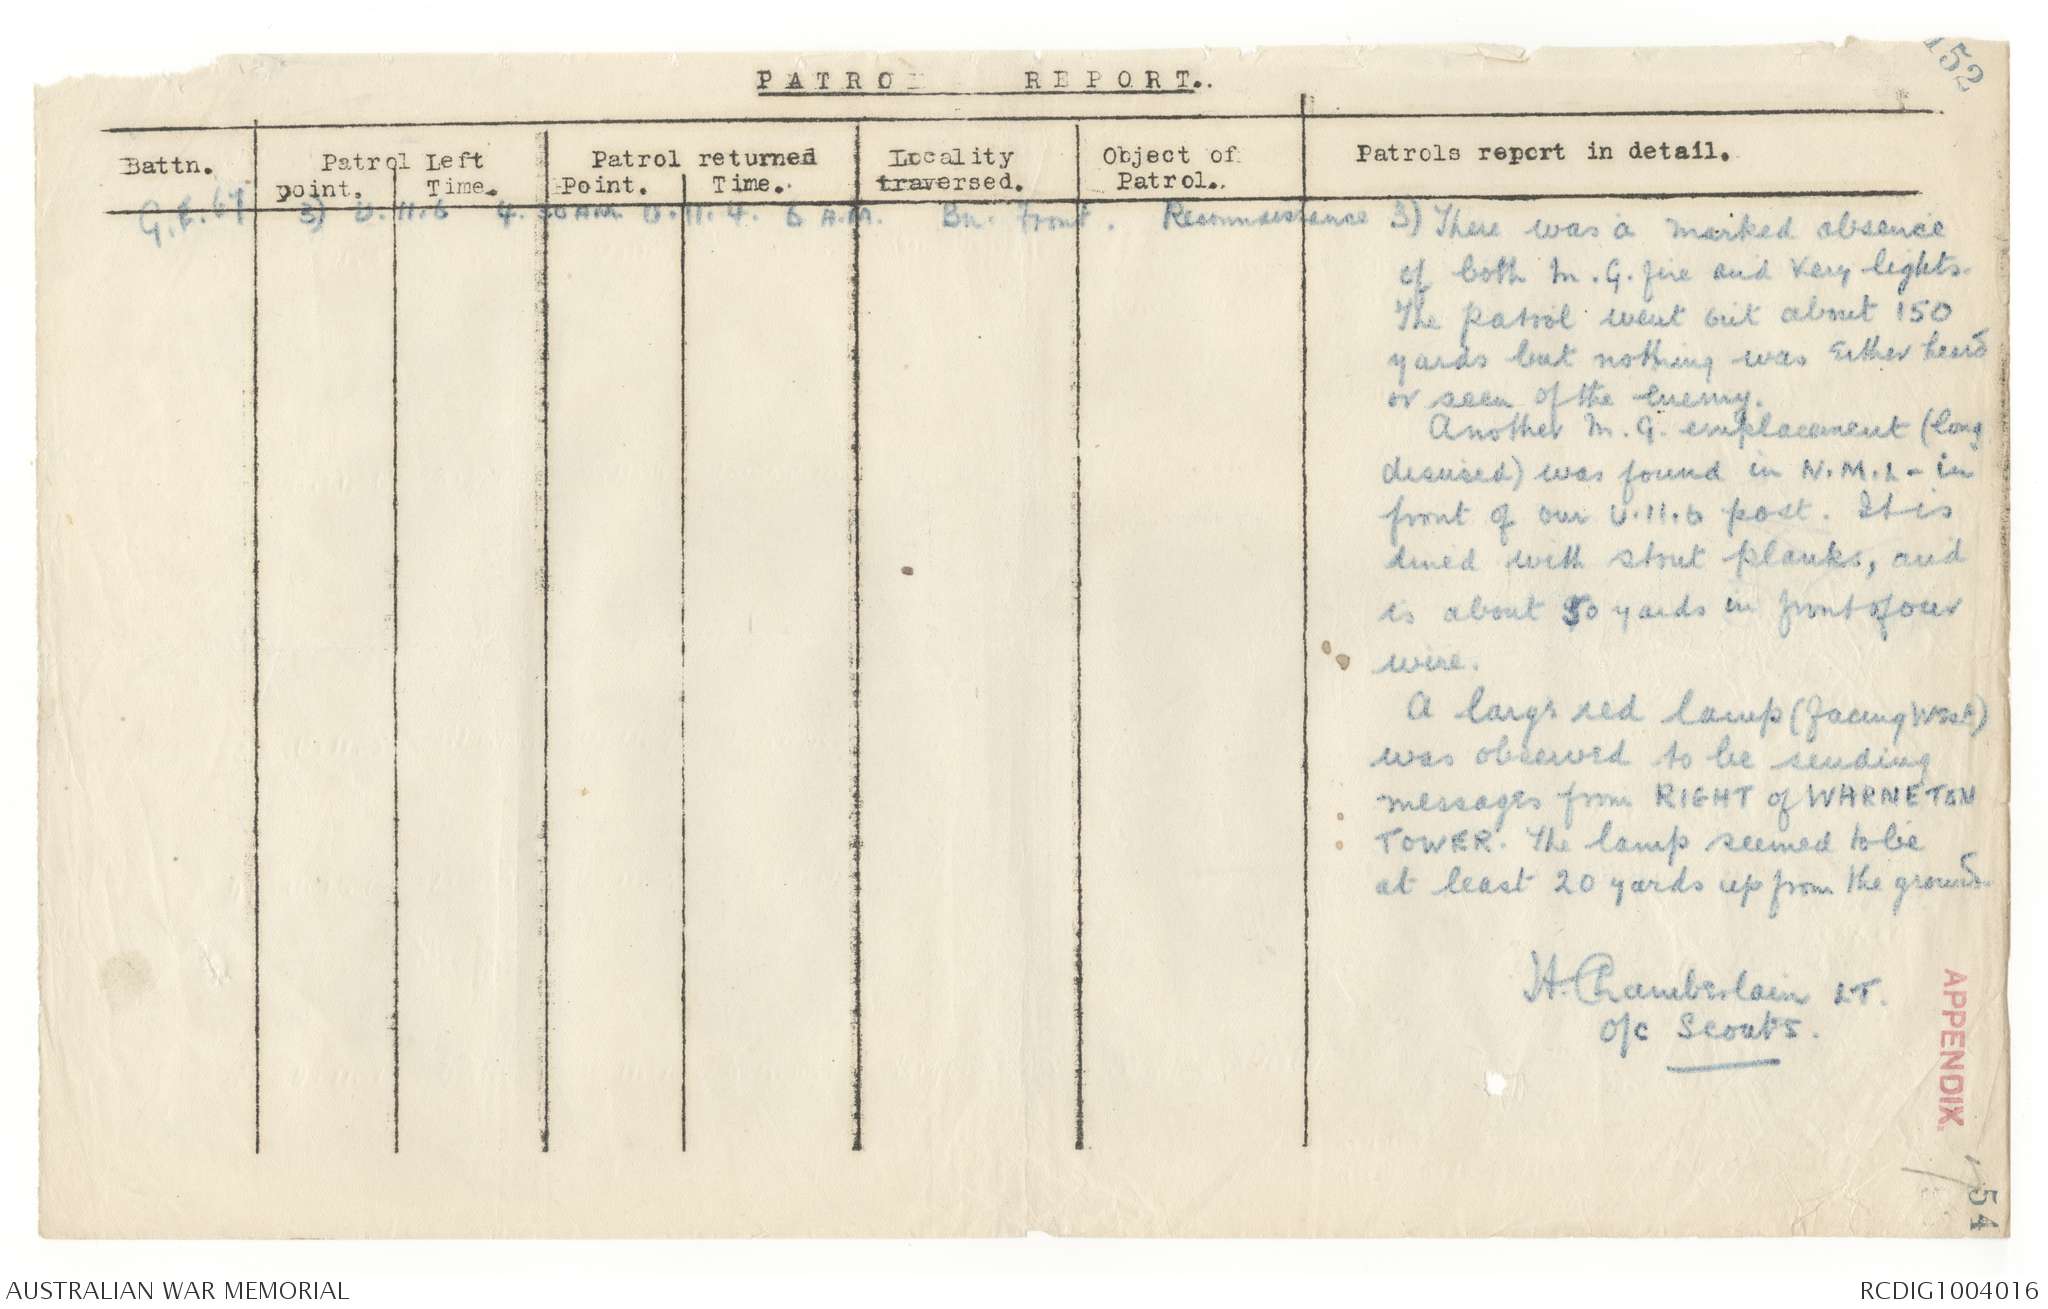 152
PATROL REPORT.
Battn. Patrol Left Patrol returned Locality Object of Patrols report in detail.
point. Time. Point. Time. traversed. Patrol.
3) U.11.6 4.30 AM. U.11.4. 6 A.M. Bn. Front. Reconnaissance 3) There was a marked absence
of both M.G. fire and Very lights.
The patrol went out about 150
yards but nothing was either heard
or seen of the enemy.
Another M.G. emplacement (long
disused) was found in N.M.L - in
front of our U.11.6 post. It is
lined with stout planks, and
is about 50 yards in front of our
wire.
A large red lamp (facing West)
was observed to be sending
messages from RIGHT of WARNETON
TOWER. The lamp seemed to be
at least 20 yards up from the ground.
H. Chamberlain LT.
O/C Scouts.
APPENDIX
54
AUSTRALIAN WAR MEMORIAL RCDIG1004016